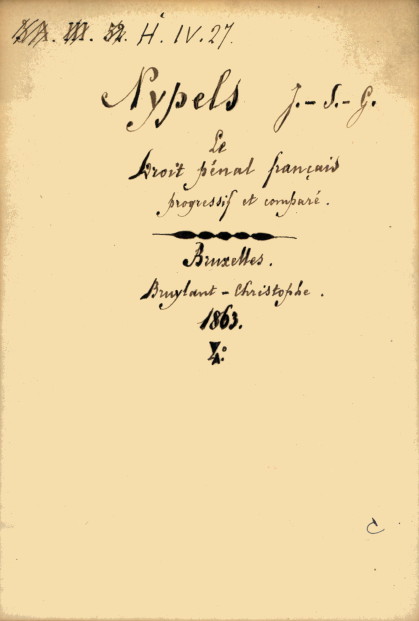 H. IV. 27.
Nypels J.-S.-G.
Le
Droit pénal français
progressif et comparé.
Bruxelles.
Bruylant-Christophe.
1863.
4.°
C